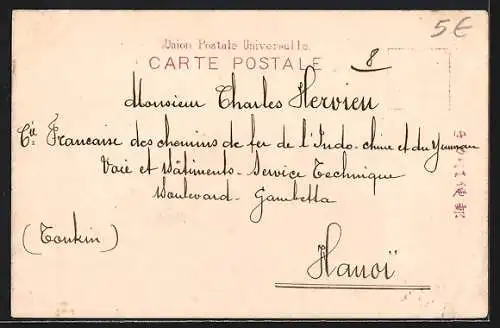 5€
Union Postale Universelle.
CARTE POSTALE
8
Monsieur Charles Hervieu
Cie Francaise des chemins de fer de l'Indo-chine et du Yunnan
Voie et Bâtiments - Service Technique
Boulevard - Gambetta
(Tonkin)
Hanoï